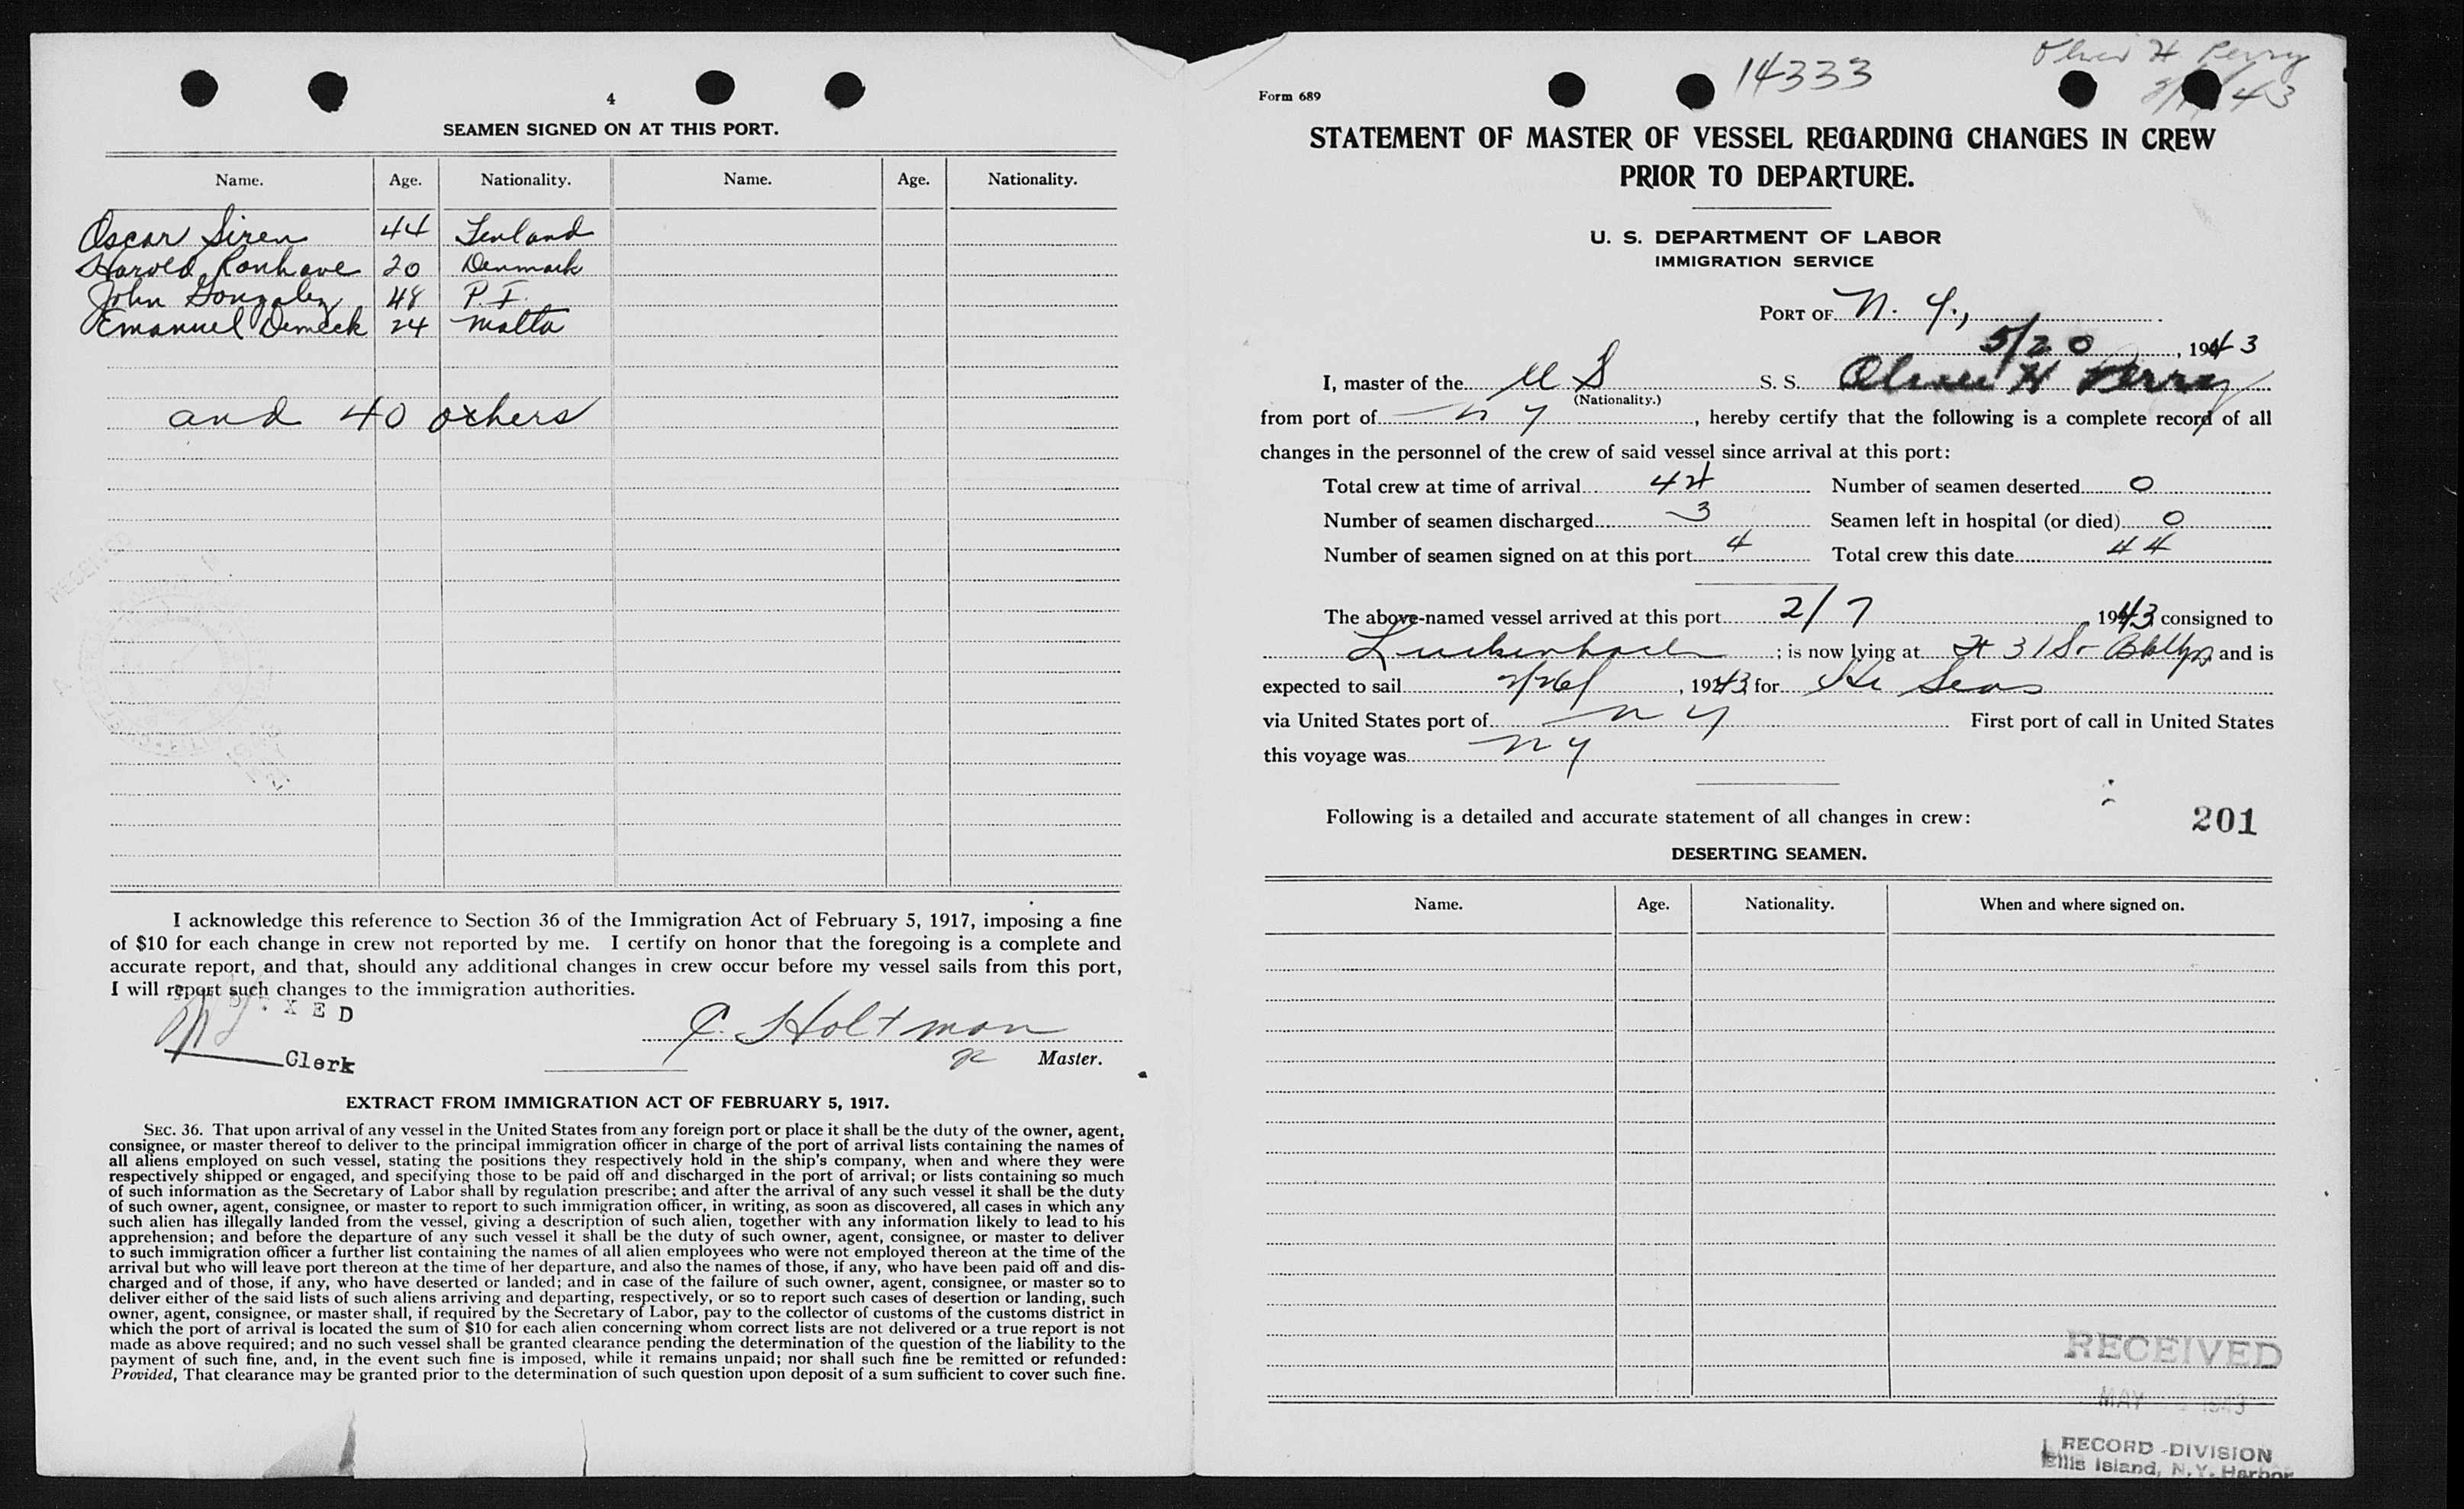 4
SEAMEN SIGNED ON AT THIS PORT.
Name. Age. Nationality. Name. Age. Nationality.
Oscar Siren 44 Finland
Harold Ronhave 20 Denmark
John Gonzalez 48 P. I.
Emanuel Demeck 24 Malta
and 40 others
I acknowledge this reference to Section 36 of the Immigration Act of February 5, 1917, imposing a fine
of $10 for each change in crew not reported by me. I certify on honor that the foregoing is a complete and
accurate report, and that, should any additional changes in crew occur before my vessel sails from this port,
I will report such changes to the immigration authorities.
Clerk
C. Holtman
Master.
EXTRACT FROM IMMIGRATION ACT OF FEBRUARY 5, 1917.
SEC. 36. That upon arrival of any vessel in the United States from any foreign port or place it shall be the duty of the owner, agent,
consignee, or master thereof to deliver to the principal immigration officer in charge of the port of arrival lists containing the names of
all aliens employed on such vessel, stating the positions they respectively hold in the ship's company, when and where they were
respectively shipped or engaged, and specifying those to be paid off and discharged in the port of arrival; or lists containing so much
of such information as the Secretary of Labor shall by regulation prescribe; and after the arrival of any such vessel it shall be the duty
of such owner, agent, consignee, or master to report to such immigration officer, in writing, as soon as discovered, all cases in which any
such alien has illegally landed from the vessel, giving a description of such alien, together with any information likely to lead to his
apprehension; and before the departure of any such vessel it shall be the duty of such owner, agent, consignee, or master to deliver
to such immigration officer a further list containing the names of all alien employees who were not employed thereon at the time of the
arrival but who will leave port thereon at the time of her departure, and also the names of those, if any, who have been paid off and dis-
charged and of those, if any, who have deserted or landed; and in case of the failure of such owner, agent, consignee, or master so to
deliver either of the said lists of such aliens arriving and departing, respectively, or so to report such cases of desertion or landing, such
owner, agent, consignee, or master shall, if required by the Secretary of Labor, pay to the collector of customs of the customs district in
which the port of arrival is located the sum of $10 for each alien concerning whom correct lists are not delivered or a true report is not
made as above required; and no such vessel shall be granted clearance pending the determination of the question of the liability to the
payment of such fine, and, in the event such fine is imposed, while it remains unpaid; nor shall such fine be remitted or refunded:
Provided, That clearance may be granted prior to the determination of such question upon deposit of a sum sufficient to cover such fine.
Oliver H. Perry
Form 689
14333
STATEMENT OF MASTER OF VESSEL REGARDING CHANGES IN CREW
PRIOR TO DEPARTURE.
U. S. DEPARTMENT OF LABOR
IMMIGRATION SERVICE
PORT OF N. Y.,
5/20, 1943
I, master of the U S S. S. Oliver H Perry
(Nationality.)
from port of N Y, hereby certify that the following is a complete record of all
changes in the personnel of the crew of said vessel since arrival at this port:
Total crew at time of arrival Number of seamen deserted 0
Number of seamen discharged 3 Seamen left in hospital (or died) 0
Number of seamen signed on at this port 4 Total crew this date 44
The above-named vessel arrived at this port 2/7 1943, consigned to
Luckenbach; is now lying at 31 St and is
expected to sail, 1943, for Hi Seas
via United States port of N Y First port of call in United States
this voyage was N Y
Following is a detailed and accurate statement of all changes in crew:
201
DESERTING SEAMEN.
Name. Age. Nationality. When and where signed on.
RECEIVED
MAY 1943
RECORD DIVISION
Ellis Island, N.Y. Harbor